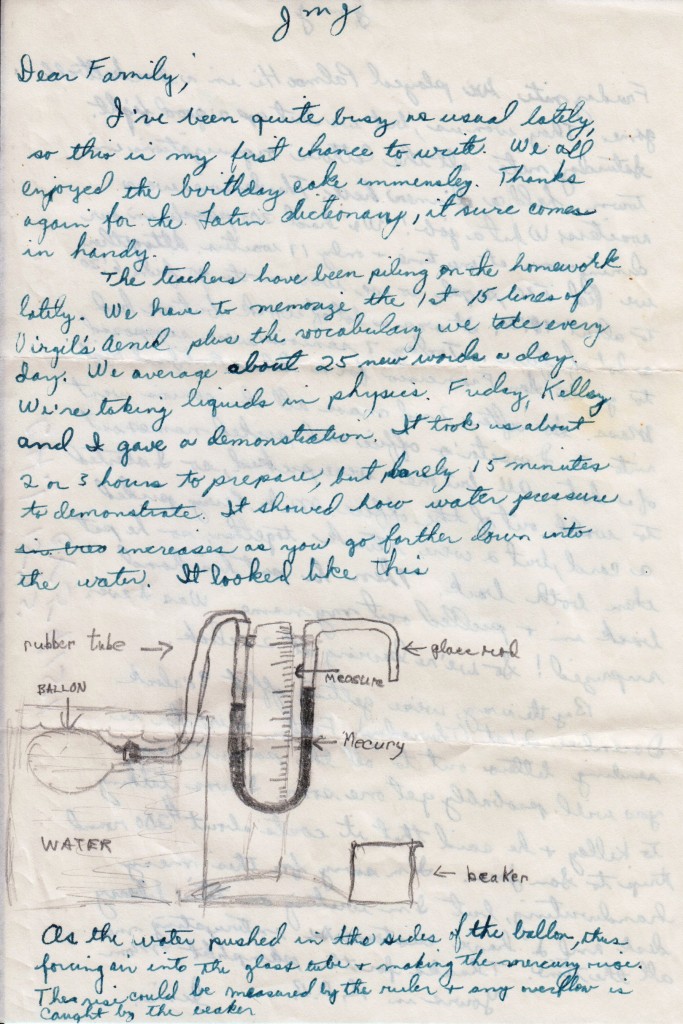 JMJ
Dear Family,
I've been quite busy as usual lately,
so this is my first chance to write. We all
enjoyed the birthday cake immensley. Thanks
again for the Latin dictionary, it sure comes
in handy.
The teachers have been piling on the homework
lately. We have to memorize the 1st 15 lines of
Virgil's Aenid plus the vocabulary we take every
day. We average about 25 new words a day.
We're taking liquids in physics. Friday, Kelley
and I gave a demonstration. It took us about
2 or 3 hours to prepare, but barely 15 minutes
to demonstrate. It showed how water pressure
increases as you go farther down into
the water. It looked like this
rubber tube
glass rod
MEASURE
BALLON
Mecury
WATER
beaker
As the water pushed in the sides of the ballon, thus
forcing air into the glass tube & making the mercury rise.
This rise could be measured by the ruler & any overflow is
caught by the beaker